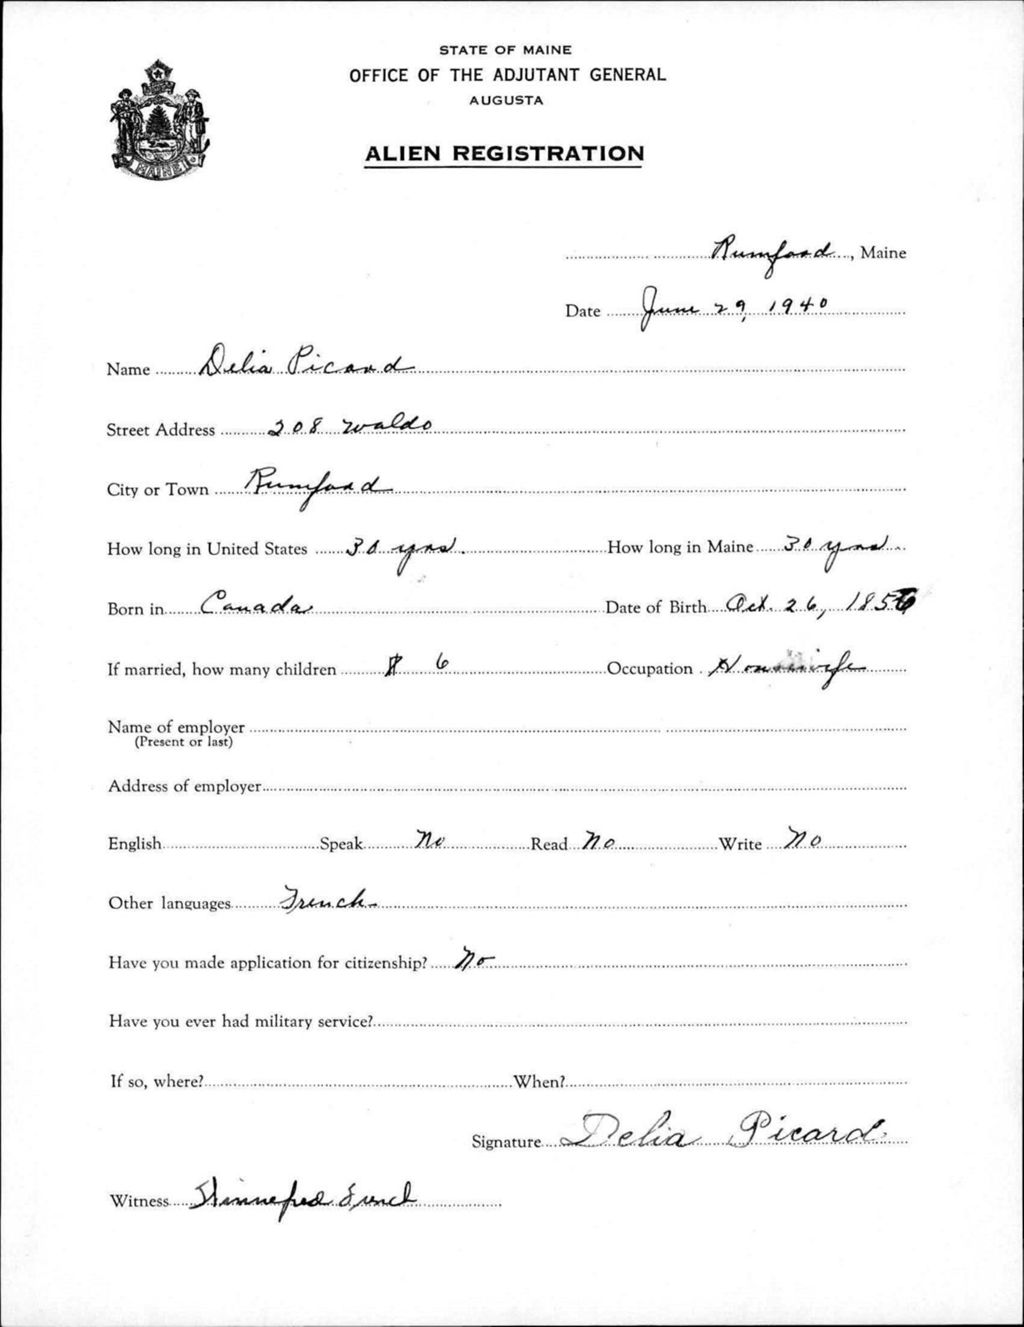 STATE OF MAINE
OFFICE OF THE ADJUTANT GENERAL
AUGUSTA
ALIEN REGISTRATION
MAINE
Rumford, Maine
Date June 29, 1940
Name Delia Picard
Street Address 208 Waldo
City or Town Rumford
How long in United States 30 yrs. How long in Maine 30 yrs
Born in Canada Date of Birth Oct. 26, 1856
If married, how many children 6 Occupation Housewife
Name of employer
(Present or last)
Address of employer
English Speak No Read No Write No
Other languages French
Have you made application for citizenship? No
Have you ever had military service?
If so, where? When?
Signature Delia Picard
Witness Winnefred